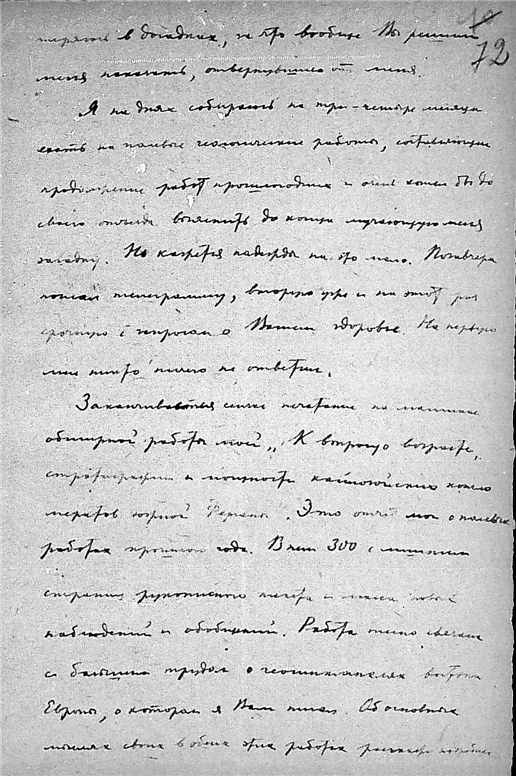 72
теряюсь в догадках, за что вообще Вы решили
меня наказать, отвернувшись от меня.
Я на днях собираюсь на три-четыре месяца
ехать на полевые геологические работы, составляющие
продолжение работ прошлогодних и очень хотел бы до
своего отъезда выяснить до конца мучающую меня
загадку. Но кажется надежды на это мало. Позавчера
послал телеграмму, вторую уже и на этот раз
срочную с запросом о Вашем здоровье. На первую
мне никто ничего не ответил.
Заканчивается сейчас печатание на машинке
обширной работы моей „К вопросу о возрасте,
стратиграфии и мощности кайнозойских конгло
мератов южной Ферганы". Это отчет мой о полевых
работах прошлого года. В нем 300 с лишним
страниц рукописного текста и масса новых
наблюдений и обобщений. Работа тесно связана
с большим трудом о геосинклиналях востока
Европы, о котором я Вам писал. Об основных
мыслях своих в обеих этих работах расскажу подробнее